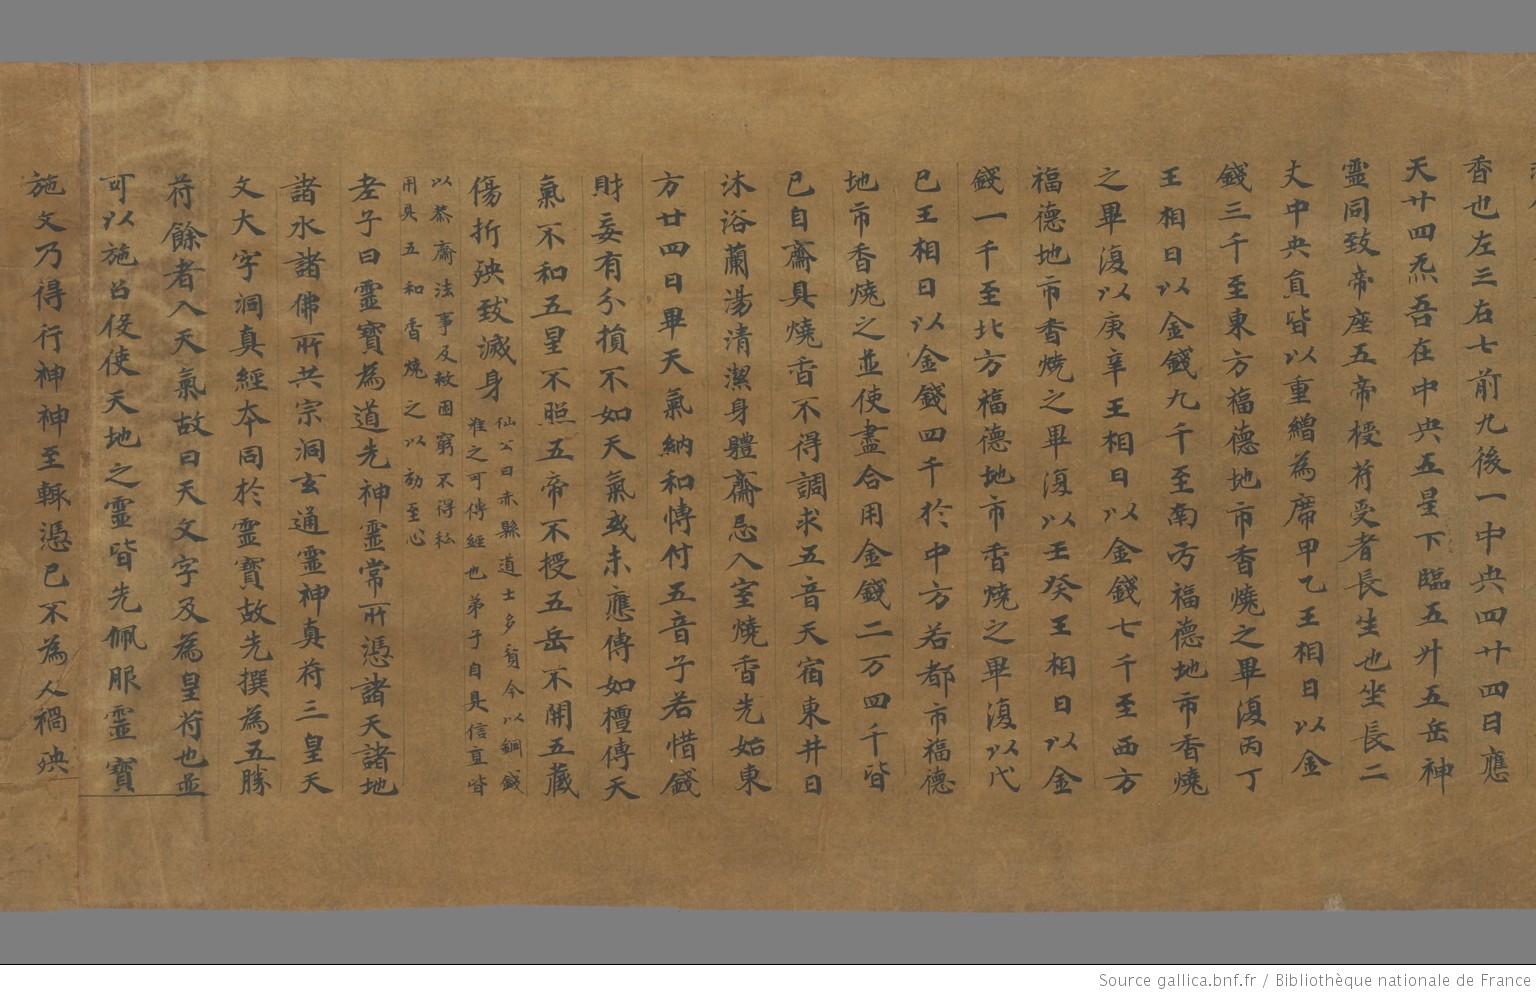 香也左三右七前九後一中央四廿四日應
天廿四炁吾在中央五星下臨五升五岳神
靈同致帝座五帝授苻受者長生也坐長二
丈中央負皆以重繒為席甲乙王相日以金
錢三千至東方福德地市香燒之畢復丙丁
王相日以金錢九千至南方福德地市香燒
之畢復以庚辛王相日以金錢七千至西方
福德地市香燒之畢復以壬癸王相日以金
錢一千至北方福德地市香燒之畢復以戊
巳王相日以金錢四千於中方若都市福德
地市香燒之並使盡合用金錢二万四千皆
巳自齋具燒香不得調求五音天宿東井日
沐浴蘭湯清潔身體齋忌入室燒香先始東
方廿四日畢天氣納和傳付五音子若惜錢
財妄有分損不如天氣或未應傳如檀傳天
氣不和五星不照五帝不授五岳不開五藏
傷折殃致滅身
仙公曰赤縣道士多貧今以銅錢
准之可傳經也弟子自具信直皆
以恭齋法事及救困窮不得私
用具五和香燒之以効至心
老子曰靈寶為道先神靈常所憑諸天諸地
諸水諸佛所共宗洞玄通靈神真苻三皇天
文大字洞真經本同於靈寳故先撰為五勝
苻餘者入天氣故曰天文字及為皇苻也並
可以施召伇使天地之靈皆先佩服靈寳
施文乃得行神神至輒憑巳不為人禍殃
Source gallica.bnf.fr / Bibliothèque nationale de France